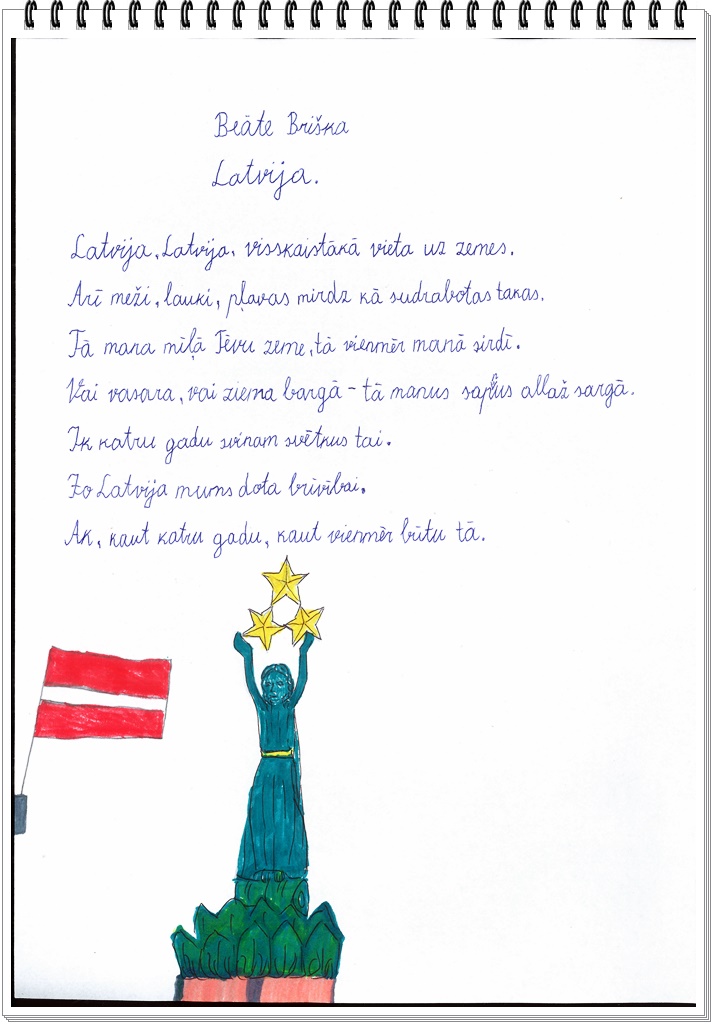 Beāte Briška
Latvija.
Latvija, Latvija, visskaistākā vieta uz zemes.
Arī meži, lauki, pļavas mirdz kā sudrabotas takas.
Tā mana mīļā Tēvu zeme, tā vienmēr manā sirdī.
Vai vasara, vai ziema bargā - tā manus sapņus allaž sargā.
Ik katru gadu svinam svētkus tai.
Jo Latvija mums dota brīvībai.
Ak, kaut katru gadu, kaut vienmēr būtu tā.